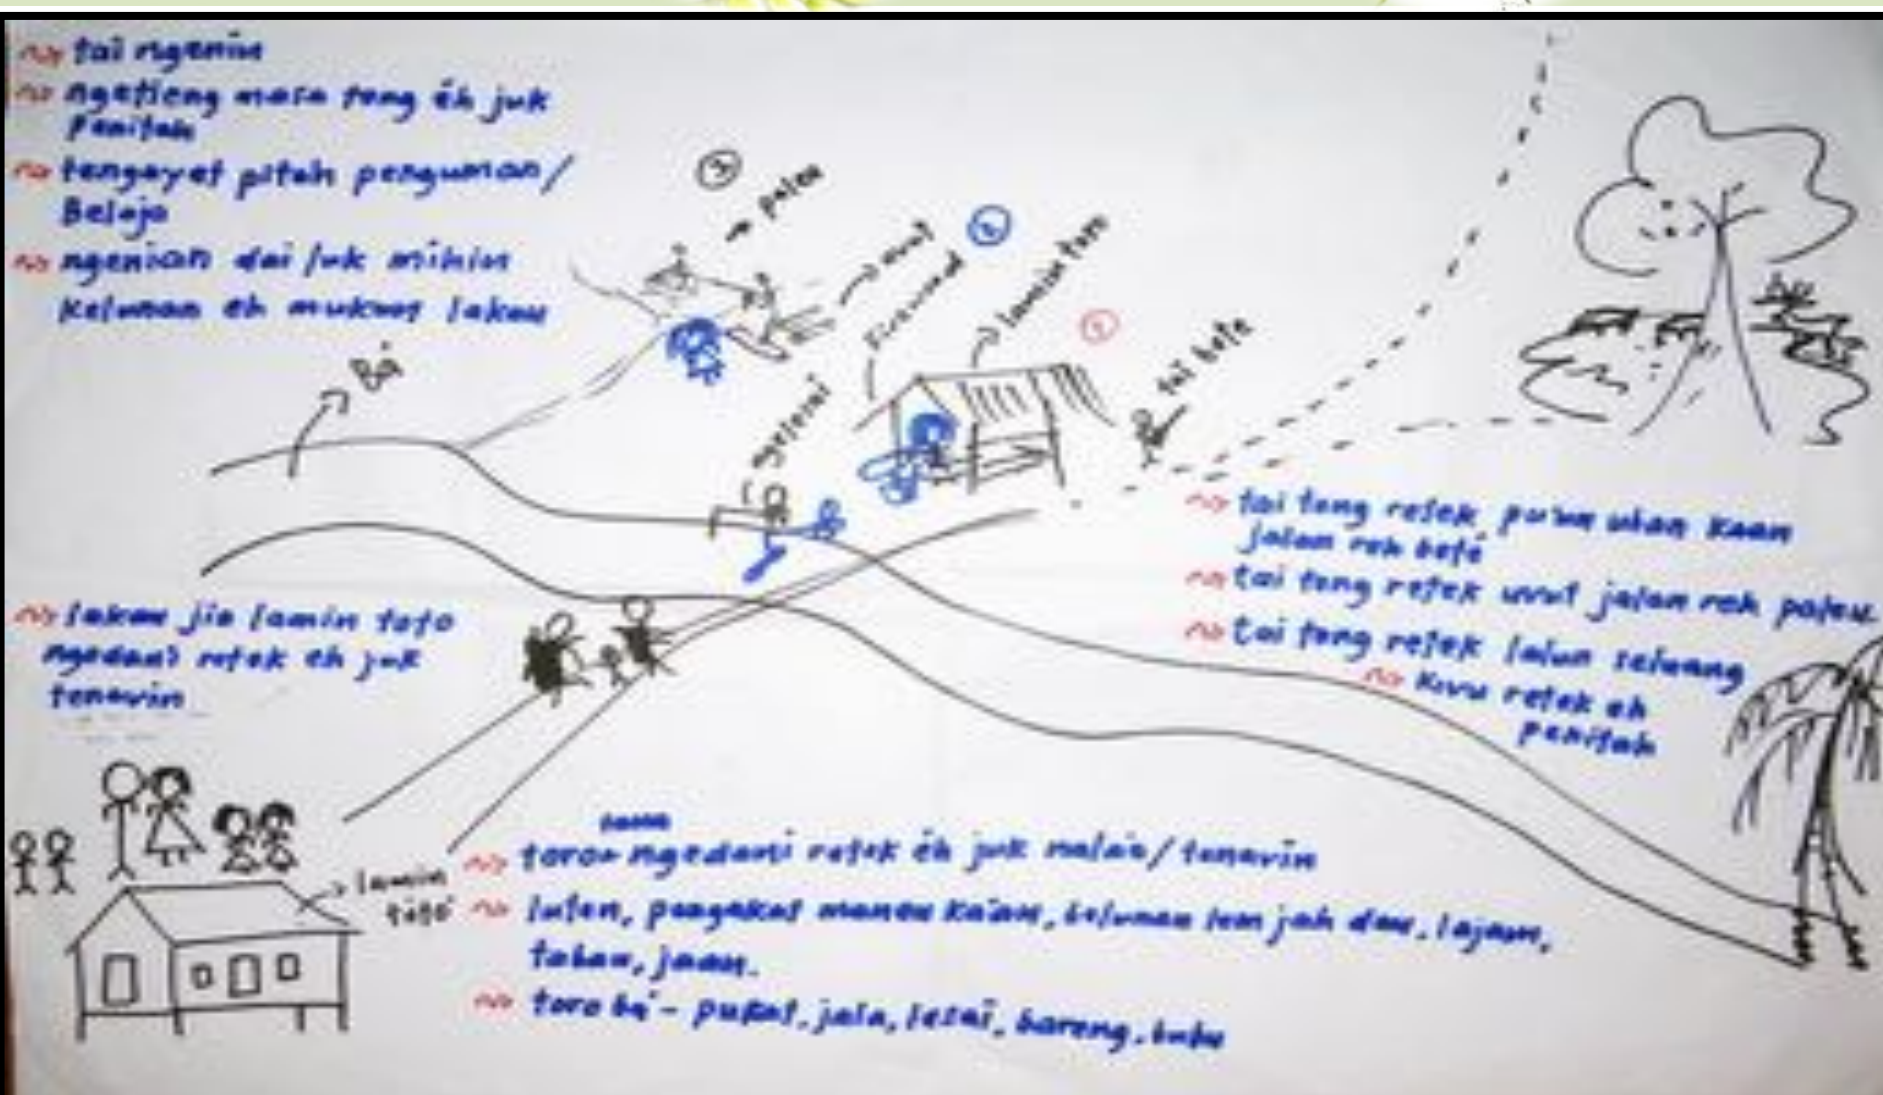 tai ngenin
ngetieng masa tong éh juk
Penitah
tengayet pitah penguman/
Belajo
ngenian dai juk mihin
kelunan eh mukung lakau
Bá
③
→ paleu
uvut
②
lamin toro
①
tai beté
ngeserai
tai tong retek pu'un ulan kaan
jalan reh beté
tai tong retek uvut jalan reh paleu
tai tong retek lalun seluang
kivu retek eh
penitah
lakau jin lamin toto
ngedani retek eh juk
tenavin
lamin
toto
toro ngedani retek éh juk malain/tenavin
luten, pengakat maneu kaian, belunan lem jah dau, lajam,
tabau, jaan.
toro bá - pukat, jala, lesai, bareng, bubu